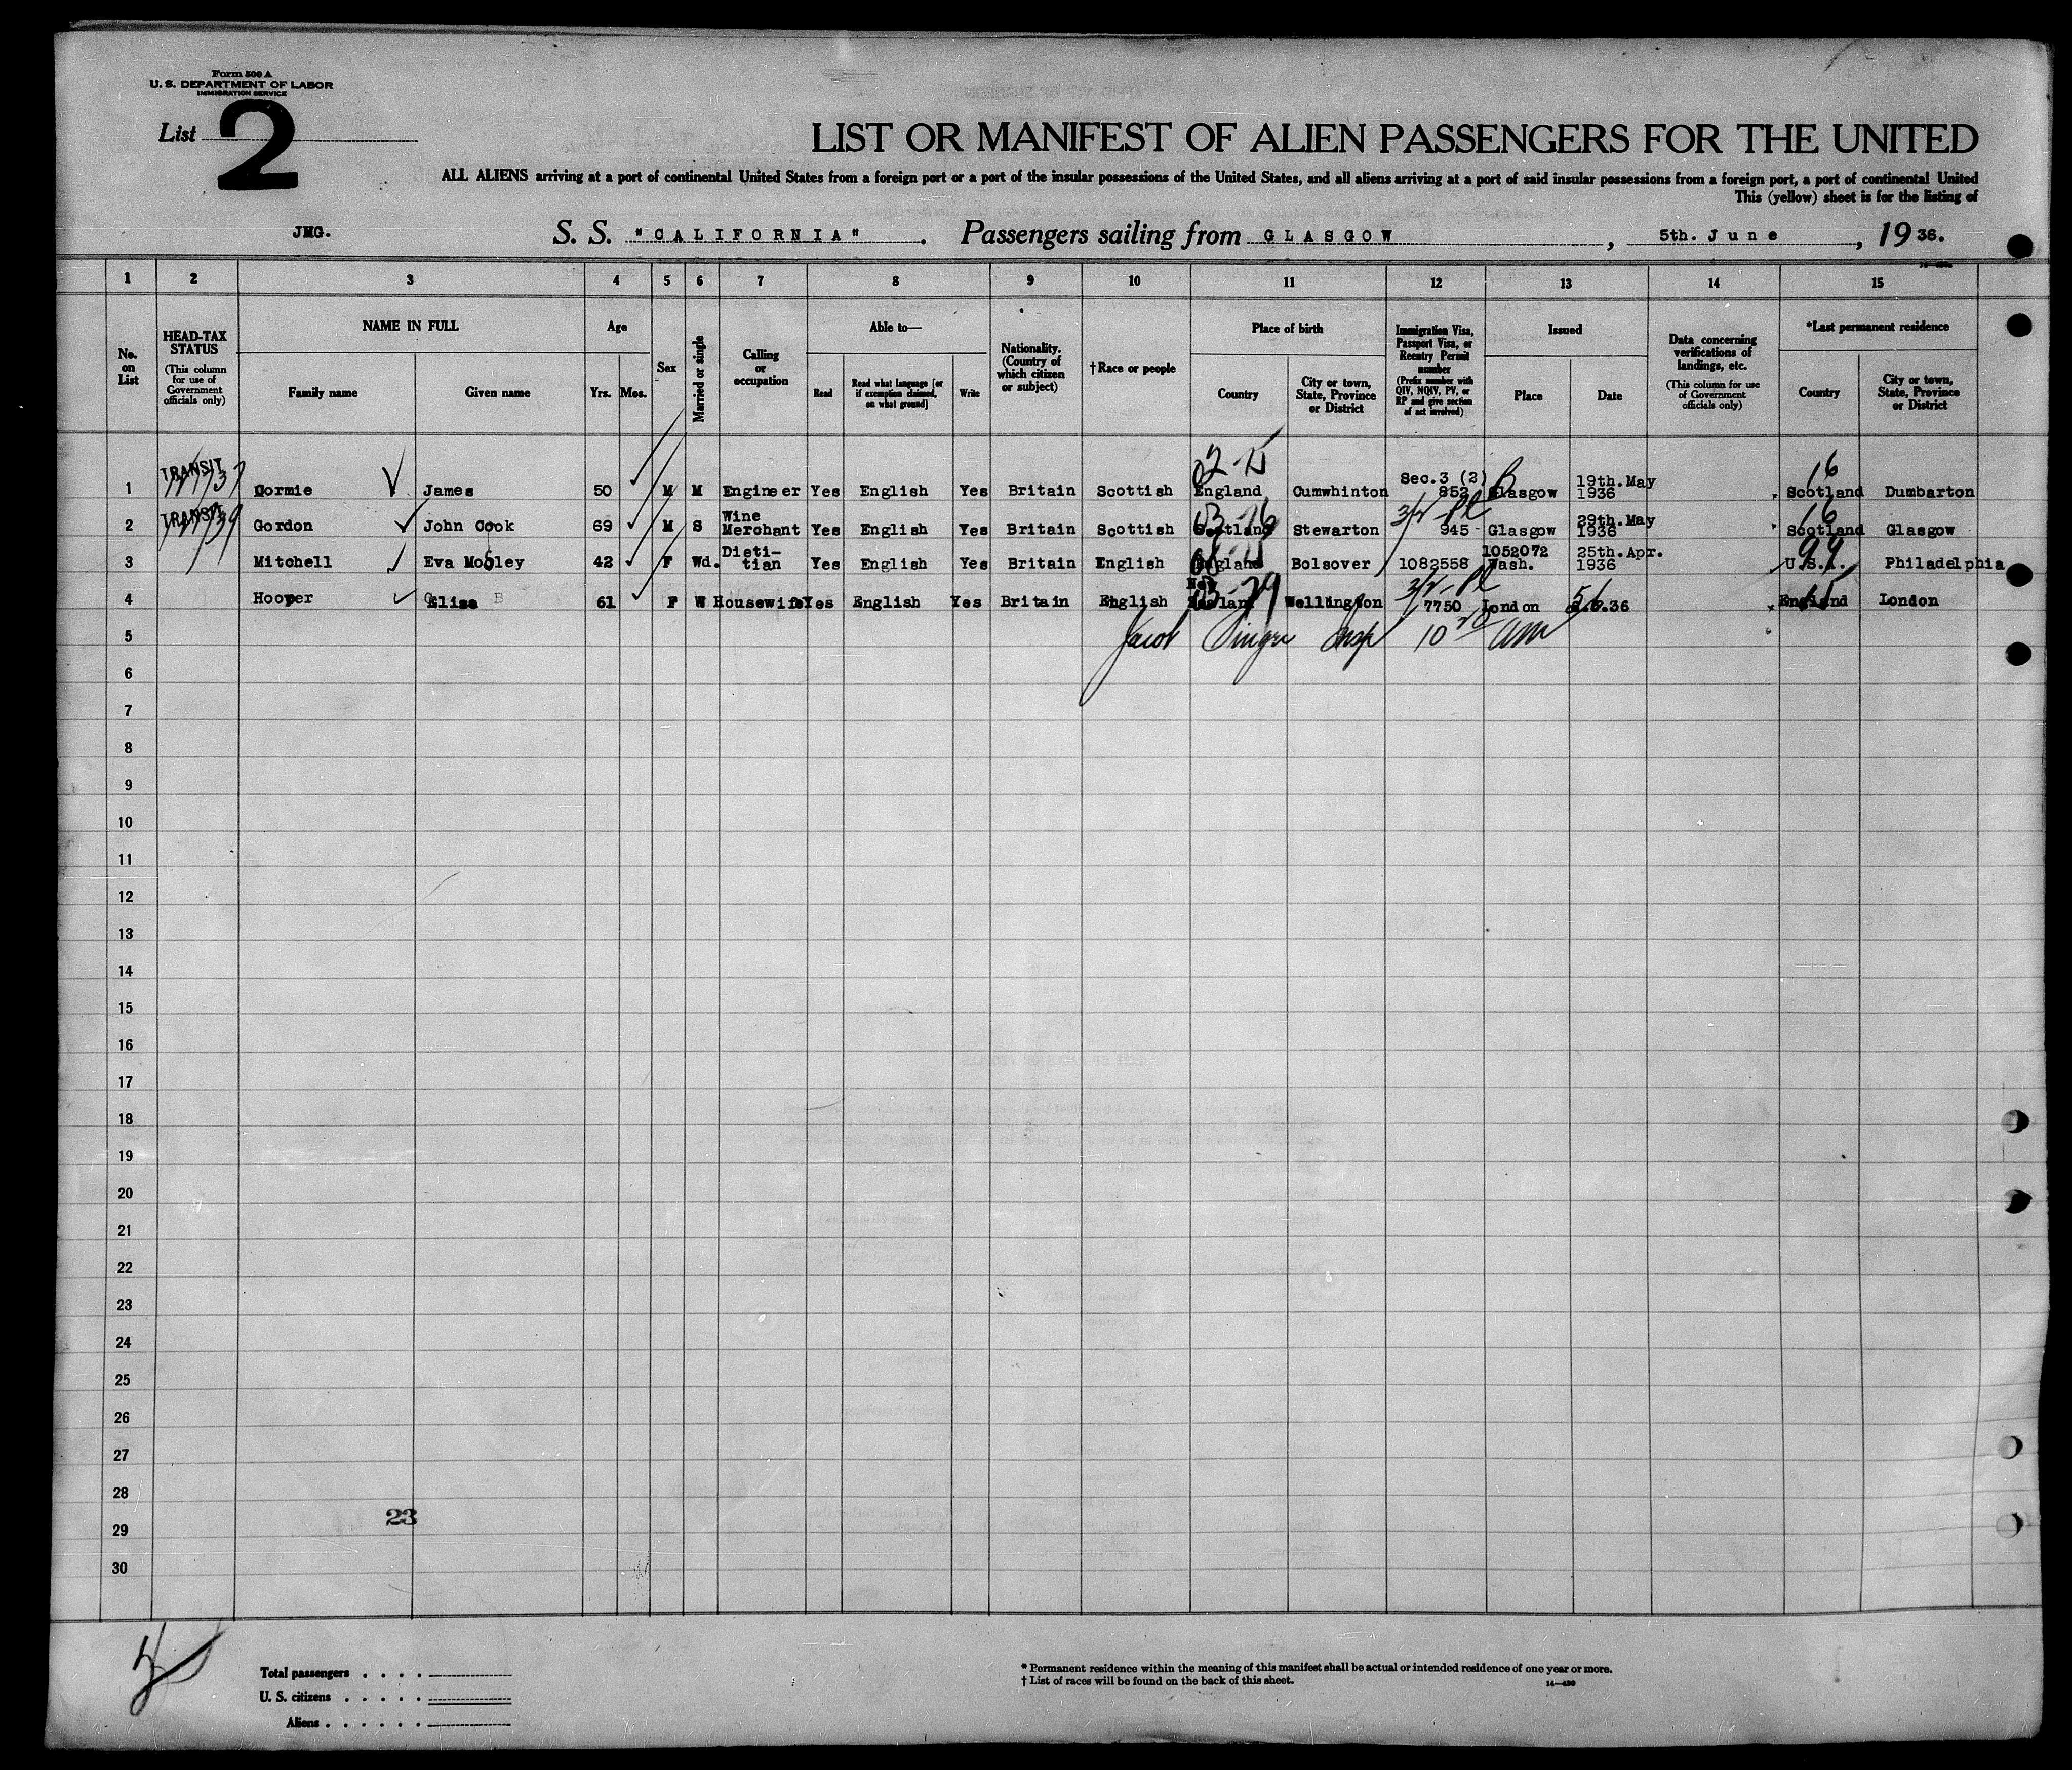 Form 500 A
U. S. DEPARTMENT OF LABOR
IMMIGRATION SERVICE
List 2
LIST OR MANIFEST OF ALIEN PASSENGERS FOR THE UNITED
ALL ALIENS arriving at a port of continental United States from a foreign port or a port of the insular possessions of the United States, and all aliens arriving at a port of said insular possessions from a foreign port, a port of continental United
This (yellow) sheet is for the listing of
JMG. S. S. "CALIFORNIA". Passengers sailing from GLASGOW, 5th. June, 1936.
1 2 3 4 5 6 7 8 9 10 11 12 13 14 15
No. on List
HEAD-TAX STATUS (This column for use of Government officials only)
NAME IN FULL
Family name Given name
Age
Yrs. Mos.
Sex
Married or single
Calling or occupation
Able to—
Read Read what language [or if exemption claimed, on what ground] Write
Nationality. (Country of which citizen or subject)
† Race or people
Place of birth
Country City or town, State, Province or District
Immigration Visa, Passport Visa, or Reentry Permit number (Prefix number with QIV, NQIV, PV, or RP and give section of act involved)
Issued
Place Date
Data concerning verifications of landings, etc. (This column for use of Government officials only)
*Last permanent residence
Country City or town, State, Province or District
1 TRANSIT Dormie James 50 M M Engineer Yes English Yes Britain Scottish England Cumwhinton Sec.3 (2) 852 Glasgow 19th.May 1936 16 Scotland Dumbarton
2 TRANSIT Gordon John Cook 69 M S Wine Merchant Yes English Yes Britain Scottish Scotland Stewarton 945 Glasgow 29th.May 1936 16 Scotland Glasgow
3 Mitchell Eva Mosley 42 F Wd. Dieti-tian Yes English Yes Britain English England Bolsover 1082558 1052072 Wash. 25th.Apr. 1936 99 U.S.A. Philadelphia
4 Hooper Elisa B 61 F W Housewife Yes English Yes Britain English New Zealand Wellington 7750 London 5.6.36 15 England London
5 Jacob Insp 10 am
6
7
8
9
10
11
12
13
14
15
16
17
18
19
20
21
22
23
24
25
26
27
28
23
29
30
Total passengers . . . .
U. S. citizens . . . . .
Aliens . . . . . .
* Permanent residence within the meaning of this manifest shall be actual or intended residence of one year or more.
† List of races will be found on the back of this sheet.
14—430